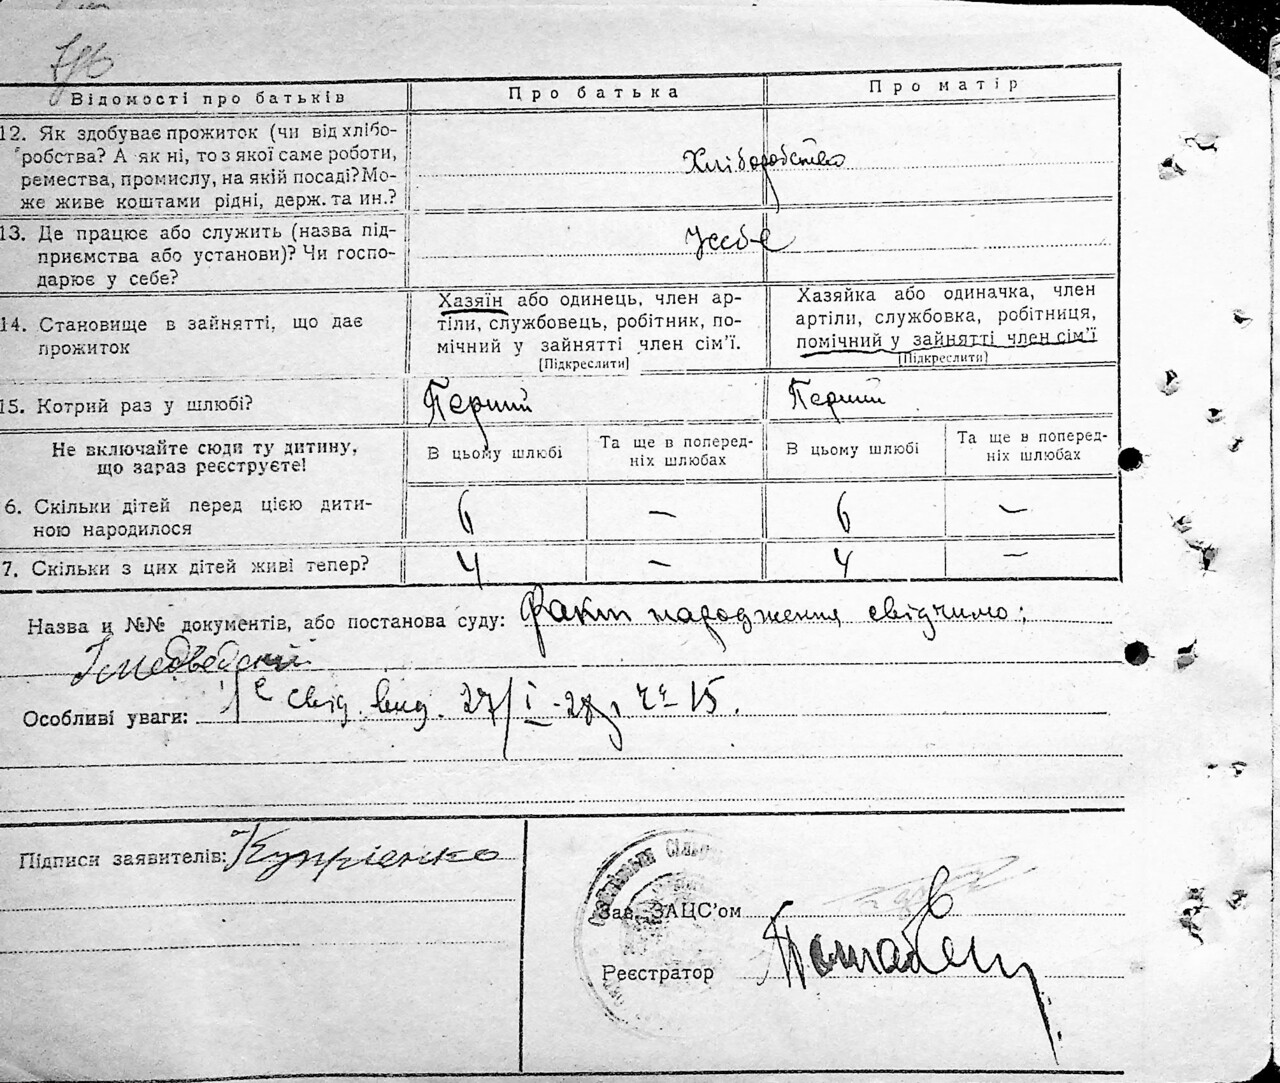 Відомості про батьків
Про батька
Про матір
12. Як здобуває прожиток (чи від хлібо-
робства? А як ні, то з якої саме роботи,
ремества, промислу, на якій посаді? Мо-
же живе коштами рідні, держ. та ин.?
Хліборобство
13. Де працює або служить (назва під-
приємства або установи)? Чи госпо-
дарює у себе?
У себе
14. Становище в зайнятті, що дає
прожиток
Хазяїн або одинець, член ар-
тіли, службовець, робітник, по-
мічний у зайнятті член сім'ї.
[Підкреслити]
Хазяйка або одиначка, член
артіли, службовка, робітниця,
помічний у зайнятті член сім'ї
[Підкреслити]
15. Котрий раз у шлюбі?
Перший
Перший
Не включайте сюди ту дитину,
що зараз реєструєте!
В цьому шлюбі
Та ще в поперед-
ніх шлюбах
В цьому шлюбі
Та ще в поперед-
ніх шлюбах
6. Скільки дітей перед цією дити-
ною народилося
6 — 6 —
7. Скільки з цих дітей живі тепер?
4 — 4 —
Назва и №№ документів, або постанова суду: Факт народження свідчимо:
Медведский
Особливі уваги: свід. вид. 27/I-28 р. 15.
Підписи заявителів: Купрієнко
Зав. ЗАЦС'ом
Реєстратор